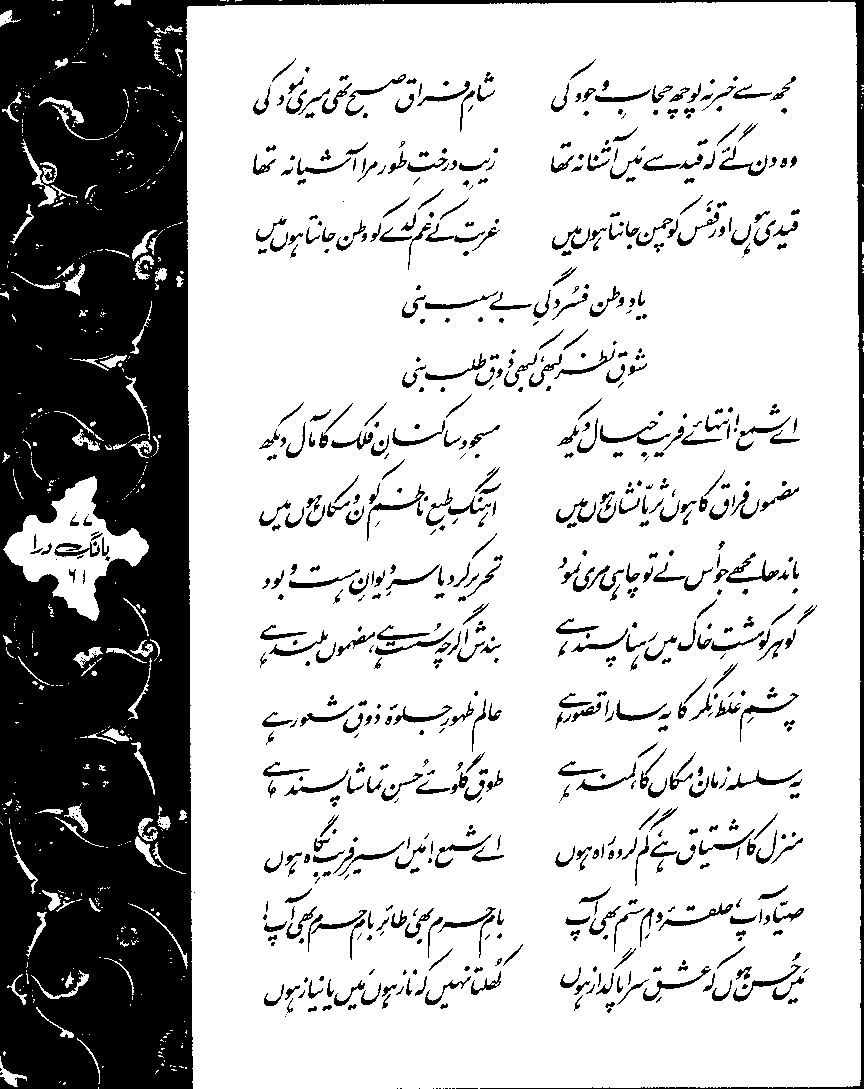 مجھ سے خبر نہ پوچھ حجابِ وجود کی    شامِ فراق صبح تھی میری نمود کی
وہ دن گئے کہ قید سے مَیں آشنا نہ تھا    زیبِ درختِ طُور مرا آشیانہ تھا
قیدی ہوں اور قفَس کو چمن جانتا ہوں مَیں    غربت کے غم کدے کو وطن جانتا ہوں مَیں
یادِ وطن فسُردگیِ بے سبب بنی
شوقِ نظر کبھی، کبھی ذوقِ طلب بنی
اے شمع! انتہائے فریبِ خیال دیکھ    مسجودِ ساکنانِ فلک کا مآل دیکھ
مضموں فراق کا ہوں، ثریّا نشاں ہوں مَیں    آہنگِ طبعِ ناظمِ کون و مکاں ہوں مَیں
باندھا مجھے جو اُس نے تو چاہی مری نمود    تحریر کر دیا سرِ دیوانِ ہست و بود
گوہر کو مشتِ خاک میں رہنا پسند ہے    بندش اگرچہ سُست ہے، مضموں بلند ہے
چشمِ غلَط نِگر کا یہ سارا قصور ہے    عالم ظہورِ جلوۂ ذوقِ شعور ہے
یہ سلسلہ زمان و مکاں کا، کمند ہے    طوقِ گلُوئے حُسنِ تماشا پسند ہے
منزل کا اشتیاق ہے، گم کردہ راہ ہوں    اے شمع! مَیں اسیرِ فریبِ نگاہ ہوں
صیّاد آپ، حلقۂ دامِ ستم بھی آپ    بامِ حرم بھی، طائرِ بامِ حرم بھی آپ!
مَیں حُسن ہوں کہ عشقِ سراپا گداز ہوں    کھُلتا نہیں کہ ناز ہوں مَیں یا نیاز ہوں
۷۷
بانگِ درا
۶۱